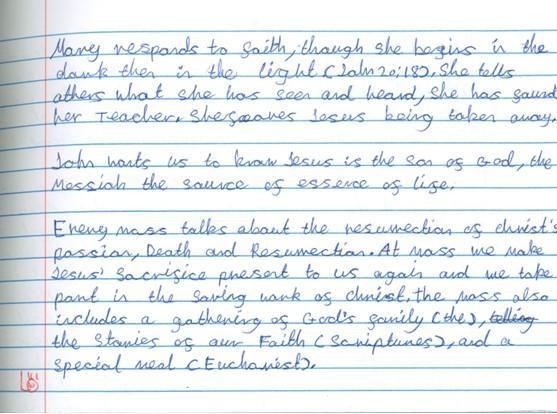 Mary responds to faith, though she begins in the
dark then in the light (John 20:18). She tells
others what she has seen and heard, she has found
her Teacher. She Jesus being taken away.
John wants us to know Jesus is the son of God, the
Messiah the source of essence of life.
Every mass talks about the resurrection of christ's
passion, Death and Resurrection. At mass we make
Jesus' Sacrifice present to us again and we take
part in the saving work of christ, the mass also
includes a gathering of God's family (the), telling
the Stories of our Faith (Scriptures), and a
special meal (Eucharist).